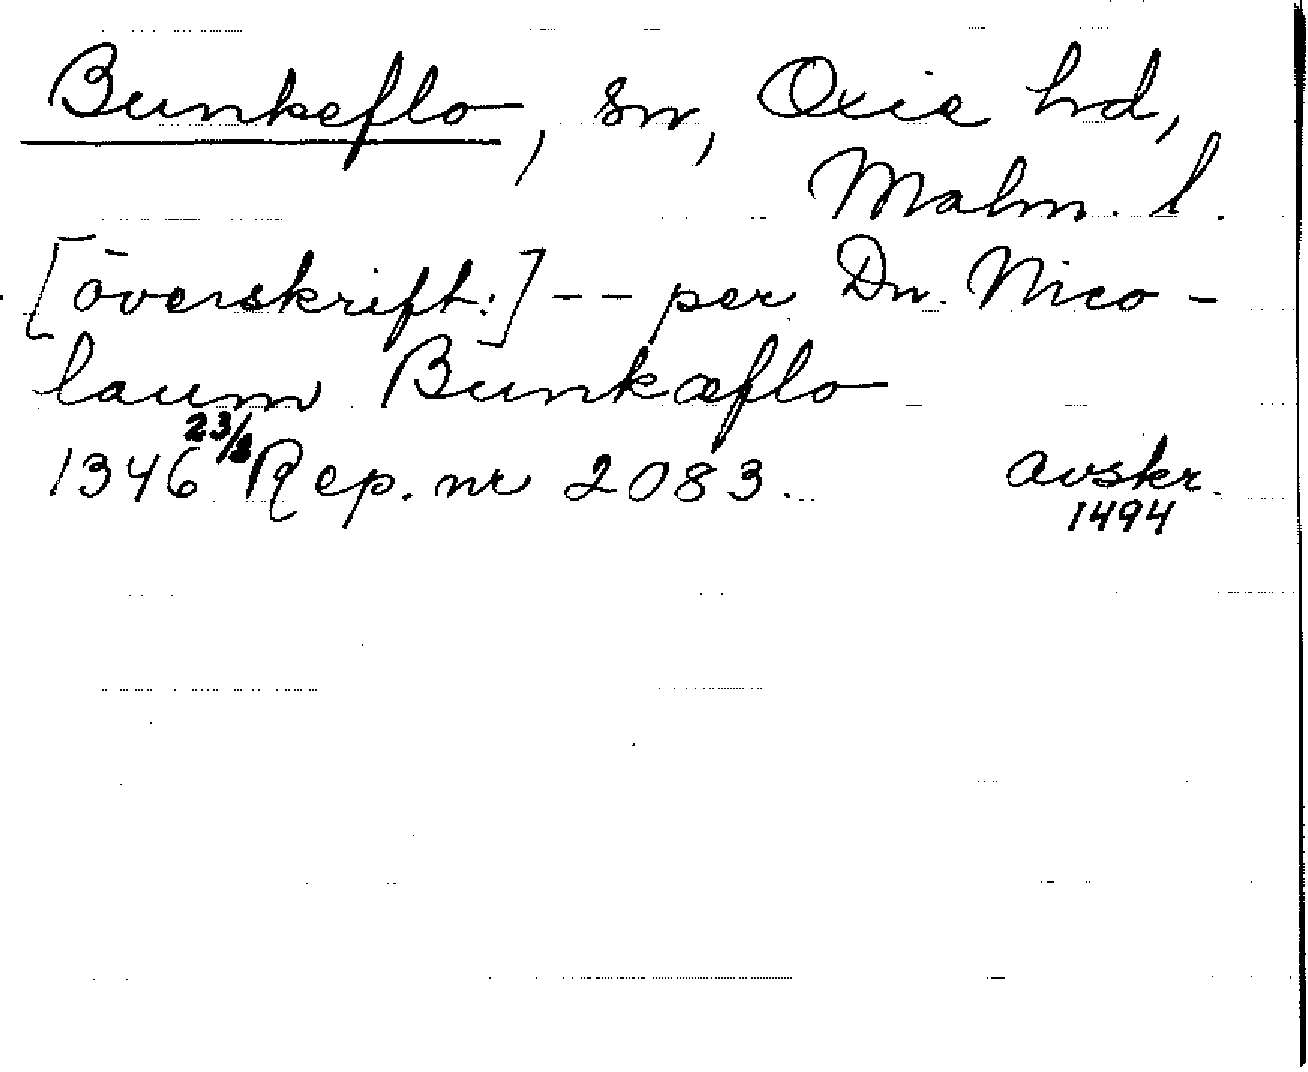 Bunkeflo, sn, Oxie hd,
Malm. l.
[överskrift:] -- per Dn. Nico-
laum Bunkæflo
1346 23/8 Rep. nr 2083. avskr.
1494